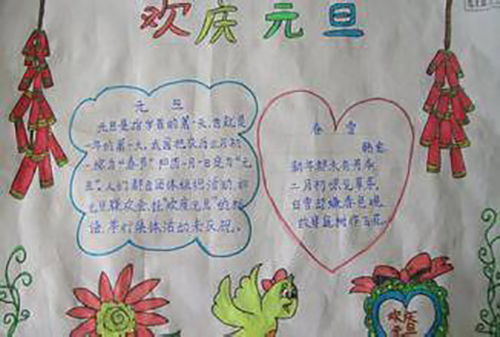 欢庆元旦
元旦
元旦是指岁首的第一天,也就是
一年的第一天,我国把农历正月初
一称为“春节”阳历一月一日定为“元
旦”,人们都自团体组织活动,如
元旦联欢会,挂“欢庆元旦”的标
语,举行集体活动来庆祝。
春雪
韩愈
新年都未有芳华
二月初惊见草芽。
白雪却嫌春色晚
故穿庭树作飞花
欢庆
元旦